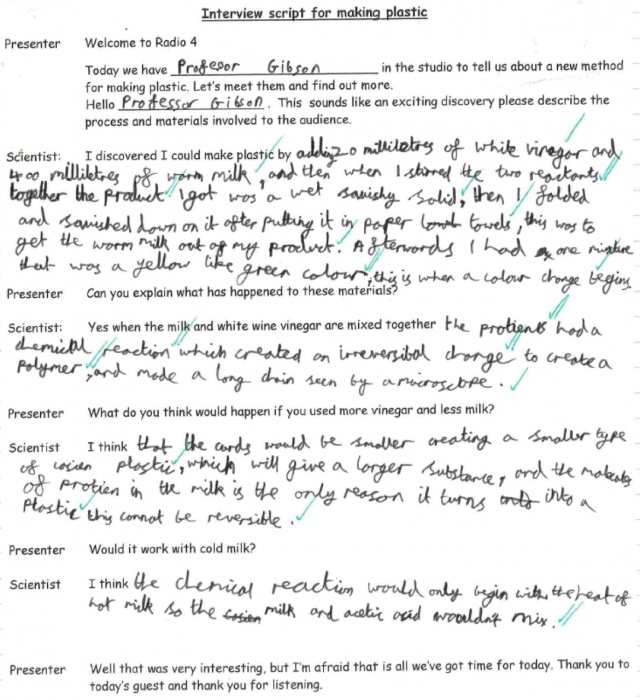 Interview script for making plastic
Presenter Welcome to Radio 4
Today we have Profesor Gibson in the studio to tell us about a new method
for making plastic. Let's meet them and find out more.
Hello Professor Gibson. This sounds like an exciting discovery please describe the
process and materials involved to the audience.
Scientist: I discovered I could make plastic by adding 20 milliletres of white vinegar and
400 millilitres of warm milk, and then when I stirred the two reactants
together the product I got was a wet squishy solid, then I folded
and squished down on it after putting it in paper towels, this was to
get the warm milk out of my product. Afterwords I had one mixture
that was a yellow like green colour, this is when a colour change begins
Presenter Can you explain what has happened to these materials?
Scientist: Yes when the milk and white wine vinegar are mixed together the protients had a
chemical reaction which created an irreversibal change to create a
Polymer, and made a long chain seen by a microscope.
Presenter What do you think would happen if you used more vinegar and less milk?
Scientist I think that the curds would be smaller creating a smaller type
of cosien plastic, which will give a larger substance, and the
of protien in the milk is the only reason it turns into a
Plastic this cannot be reversible.
Presenter Would it work with cold milk?
Scientist I think the chemical reaction would only begin with the heat of
hot milk so the milk and acetic acid wouldnt mix.
Presenter Well that was very interesting, but I'm afraid that is all we've got time for today. Thank you to
today's guest and thank you for listening.